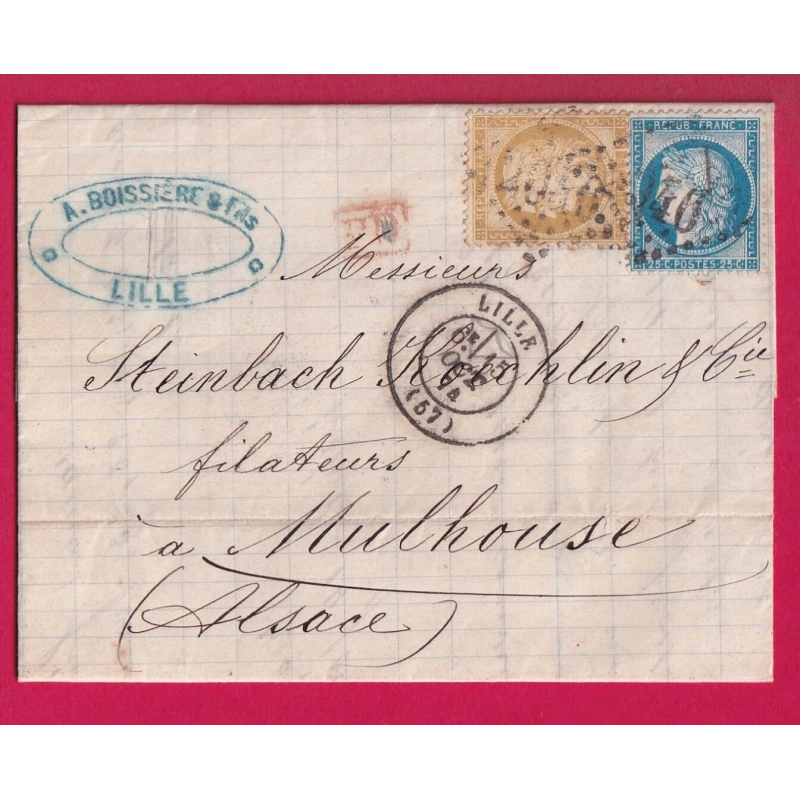 A. BOISSIÈRE & FILS
LILLE
REPUB FRANC
25 C POSTES 25 C
2046
046
PD
Messieurs
LILLE
6E / 15
OCT
74
(57)
Steinbach Koechlin & Cie
filateurs
à Mulhouse
(Alsace)